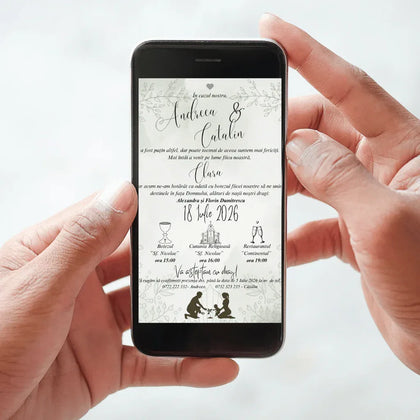 În cazul nostru,
Andreea &
Catalin
a fost puțin altfel, dar poate tocmai de aceea suntem mai fericiți.
Mai întâi a venit pe lume fiica noastră,
Clara
ar acum ne-am hotărât ca odată cu botezul fiicei noastre să ne unim
destinele în fața Domnului, alături de nașii noștri dragi:
Alexandra și Florin Dumitrescu
18 Iulie 2026
Botezul
"Sf. Nicolae"
ora 15:00
Cununia Religioasă
"Sf. Nicolae"
ora 16:00
Restaurantul
"Continental"
ora 19:00
Va așteptăm cu drag!
rugăm să confirmați prezența dvs. până la data de 5 Iulie 2026 la nr. de tel.
0772 222 333 - Andreea, 0752 525 525 - Cătălin